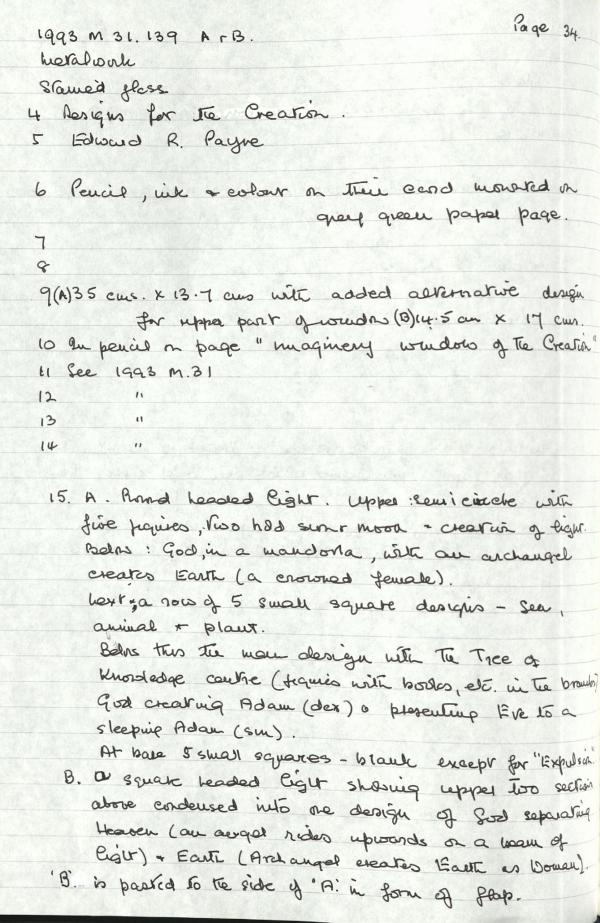 Page 34
1993 M 31.139 A + B.
Metalwork
Stained glass
4 Designs for the Creation.
5 Edward R. Payne
6 Pencil, ink + colour on thin card mounted on
grey green paper page.
7
8
9(A) 35 cms. x 13.7 cms with added alternative design
for upper part of window (B) 14.5 cm x 17 cms.
10 In pencil on page "Imaginery window of the Creation"
11 See 1993 M.31
12 "
13 "
14 "
15. A. Round headed light. Upper semicircle with
five figures, two hold sun + moon - creation of light.
Below: God, in a mandorla, with an archangel
creates Earth (a crowned female).
Next: a row of 5 small square designs - Sea,
animal + plant.
Below this the main design with the Tree of
Knowledge centre (figures with books, etc. in the branches)
God creating Adam (dex) + presenting Eve to a
sleeping Adam (sin).
At base 5 small squares - blank except for "Expulsion"
B. A square headed light showing upper two sections
above condensed into one design of God separating
Heaven (an angel rides upwards on a beam of
light) + Earth (Archangel creates Earth as Woman).
'B'. is pasted to the side of 'A'. in form of flap.